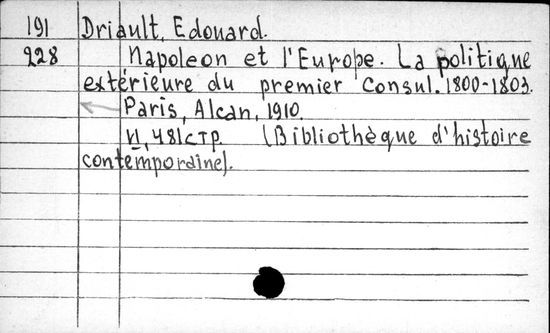 191 Driault, Edouard.
228 Napoleon et l'Europe. La politique
extérieure du premier Consul. 1800-1803.
Paris, Alcan, 1910.
VI, 481 стр. (Bibliothèque d'histoire
contemporaine).